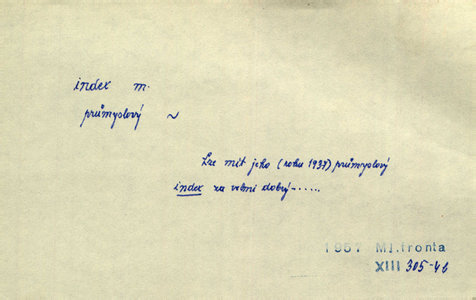 index m.
průmyslový ~
Lze mít jeho (roku 1937) průmyslový
index za velmi dobrý-.....
1957 Ml.fronta
XIII 305-4b